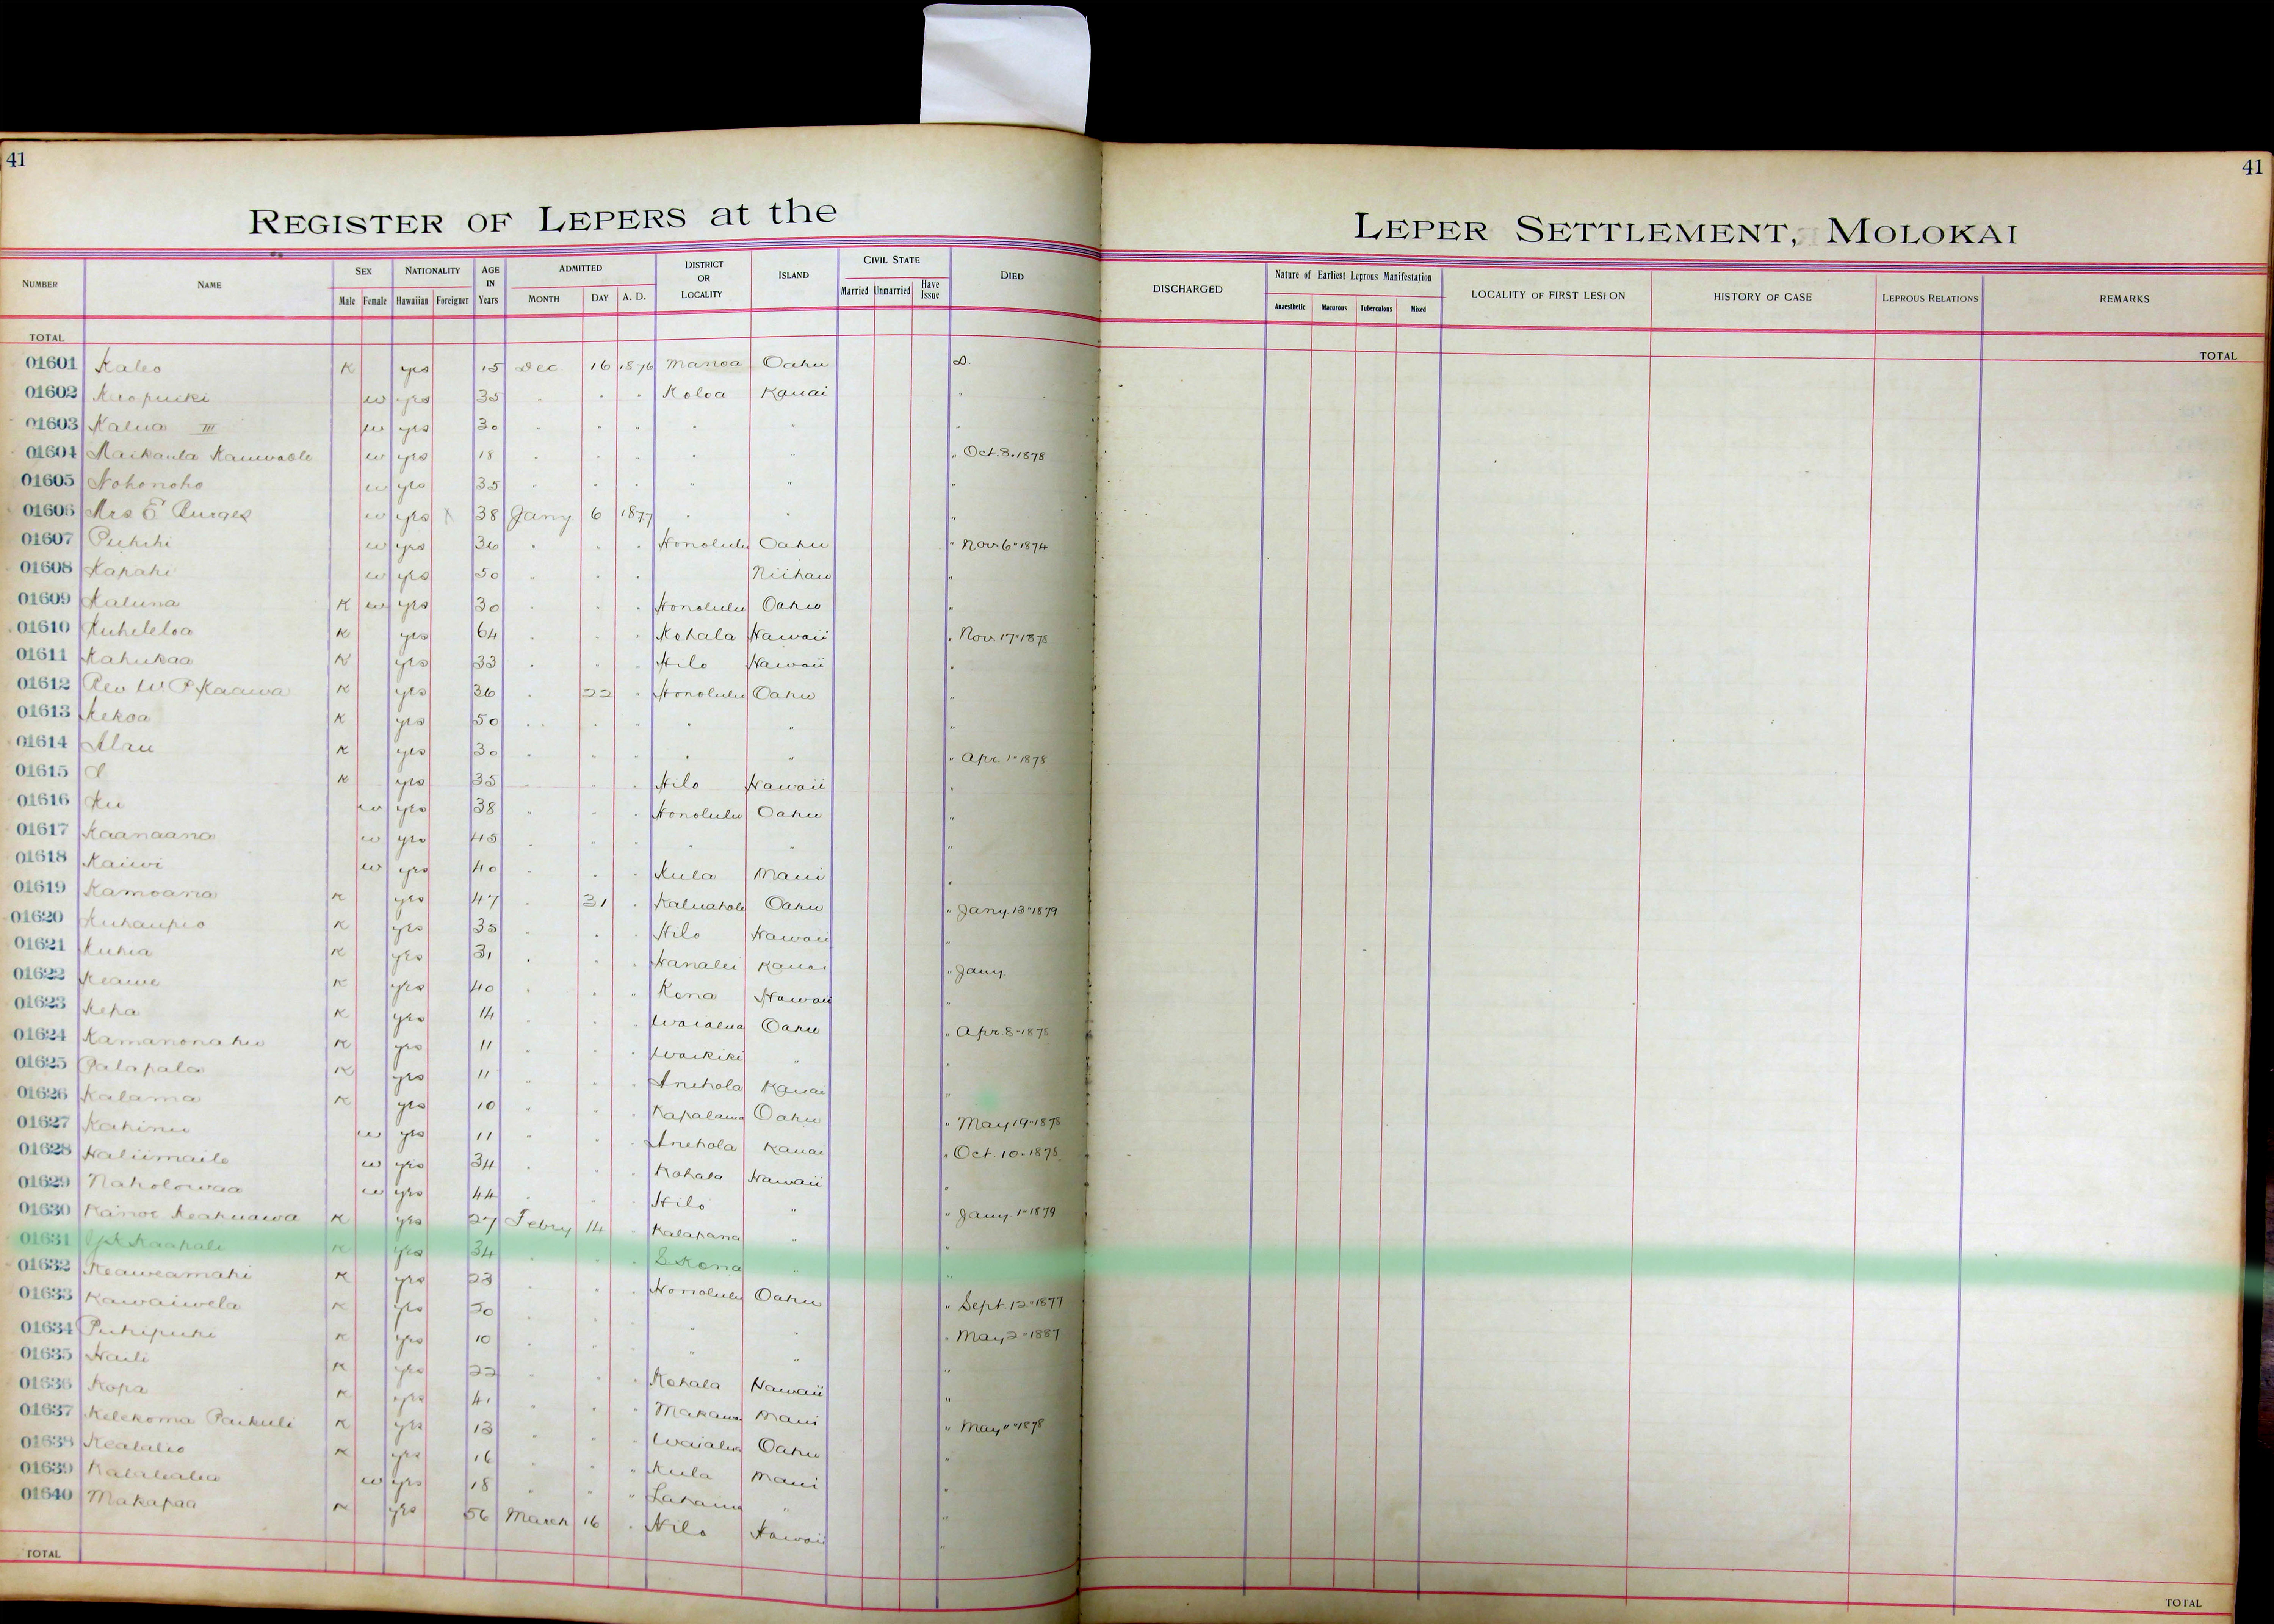 41
41
REGISTER OF LEPERS at the
LEPER SETTLEMENT, MOLOKAI
NUMBER NAME SEX Male Female NATIONALITY Hawaiian Foreigner AGE IN Years ADMITTED MONTH DAY A. D. DISTRICT OR LOCALITY ISLAND CIVIL STATE Married Unmarried Have Issue DIED
DISCHARGED Nature of Earliest Leprous Manifestation Anaesthetic Macurous Tuberculous Mixed LOCALITY OF FIRST LESION HISTORY OF CASE LEPROUS RELATIONS REMARKS
TOTAL
TOTAL
01601 Kaleo K yes 15 Dec. 16 1876 Manoa Oahu D.
01602 Keopuiki w yes 35 " " " Koloa Kauai "
01603 Kalua III w yes 30 " " " " " "
01604 Maikaula w yes 18 " " " " " " Oct. 3. 1878
01605 Nohonoho w yes 35 " " " " " "
01606 Mrs E Burges w yes X 38 Jany 6 1877 " " "
01607 Puhihi w yes 36 " " " Honolulu Oahu " Nov 6 " 1874
01608 Kapahi w yes 50 " " " Niihau "
01609 Kaluna K w yes 30 " " " Honolulu Oahu "
01610 Kuheleloa K yes 64 " " " Kohala Hawaii " Nov 17 " 1878
01611 Kahukaa K yes 33 " " " Hilo Hawaii "
01612 Rev W. P. Kaawa K yes 36 " 22 " Honolulu Oahu "
01613 Kekoa K yes 50 " " " " " "
01614 Alau K yes 30 " " " " " " Apr. 1 " 1878
01615 K yes 35 " " " Hilo Hawaii "
01616 Ku w yes 38 " " " Honolulu Oahu "
01617 Kaanaana w yes 45 " " " " " "
01618 Kaiwi w yes 40 " " " Kula Maui "
01619 Kamoana K yes 47 " 31 " Kaluahole Oahu " Jany. 13 " 1879
01620 Kuhaupio K yes 35 " " " Hilo Hawaii "
01621 Kuhia K yes 31 " " " Hanalei Kauai " Jany.
01622 Keawe K yes 40 " " " Kona Hawaii "
01623 Kepa K yes 14 " " " Waialua Oahu " Apr. 8 - 1878
01624 Kamanonahu K yes 11 " " " Waikiki " "
01625 Palapala K yes 11 " " " Anehola Kauai "
01626 Kalama K yes 10 " " " Kapalama Oahu " May 19 - 1878
01627 Kahinu w yes 11 " " " Anehola Kauai " Oct. 10 - 1878
01628 Haliimaile w yes 34 " " " Kohala Hawaii "
01629 Naholowaa w yes 44 " " " Hilo " " Jany. 1 " 1879
01630 Kainoe Keahuawa K yes 27 Febry 14 " Kalapana " "
01631 Kaapale K yes 34 " " " S Kona " "
01632 Keaweamahi K yes 23 " " " Honolulu Oahu " Sept. 12 - 1877
01633 Kawaiwela K yes 20 " " " " " " May 2 - 1887
01634 Puhipuhi K yes 10 " " " " " "
01635 Haili K yes 22 " " " Kohala Hawaii "
01636 Kopa K yes 41 " " " Makawao Maui " May 11 " 1878
01637 Kelekoma Paikuli K yes 13 " " " Waialua Oahu "
01638 Kealalio K yes 16 " " " Kula Maui "
01639 Kalahalia w yes 18 " " " Lahaina " "
01640 Makapaa K yes 56 March 16 " Hilo Hawaii "
TOTAL
TOTAL